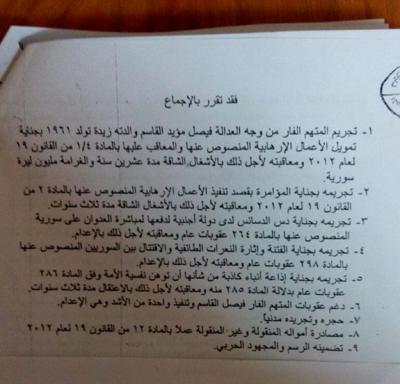 فقد تقرر بالإجماع
١- تجريم المتهم الفار من وجه العدالة فيصل مؤيد القاسم والدته زيدة تولد ١٩٦١ بجناية
تمويل الأعمال الإرهابية المنصوص عنها والمعاقب عليها بالمادة ١/٤ من القانون ١٩
لعام ٢٠١٢ ومعاقبته لأجل ذلك بالأشغال الشاقة مدة عشرين سنة والغرامة مليون ليرة
سورية.
٢- تجريمه بجناية المؤامرة بقصد تنفيذ الأعمال الإرهابية المنصوص عنها بالمادة ٢ من
القانون ١٩ لعام ٢٠١٢ ومعاقبته لأجل ذلك بالأشغال الشاقة مدة ثلاث سنوات.
٣- تجريمه بجناية دس الدسائس لدى دولة أجنبية لدفعها لمباشرة العدوان على سورية
المنصوص عنها بالمادة ٢٦٤ عقوبات عام ومعاقبته لأجل ذلك بالإعدام.
٤- تجريمه بجناية الفتنة وإثارة النعرات الطائفية والاقتتال بين السوريين المنصوص عنها
بالمادة ٢٩٨ عقوبات عام ومعاقبته لأجل ذلك بالإعدام.
٥- تجريمه بجناية إذاعة أنباء كاذبة من شأنها أن توهن نفسية الأمة وفق المادة ٢٨٦
عقوبات عام بدلالة المادة ٢٨٥ منه ومعاقبته لأجل ذلك بالاعتقال مدة ثلاث سنوات.
٦- دغم عقوبات المتهم الفار فيصل القاسم وتنفيذ واحدة من الأشد وهي الإعدام.
٧- حجره وتجريده مدنياً.
٨- مصادرة أمواله المنقولة وغير المنقولة عملاً بالمادة ١٢ من القانون ١٩ لعام ٢٠١٢
٩- تضمينه الرسم والمجهود الحربي.